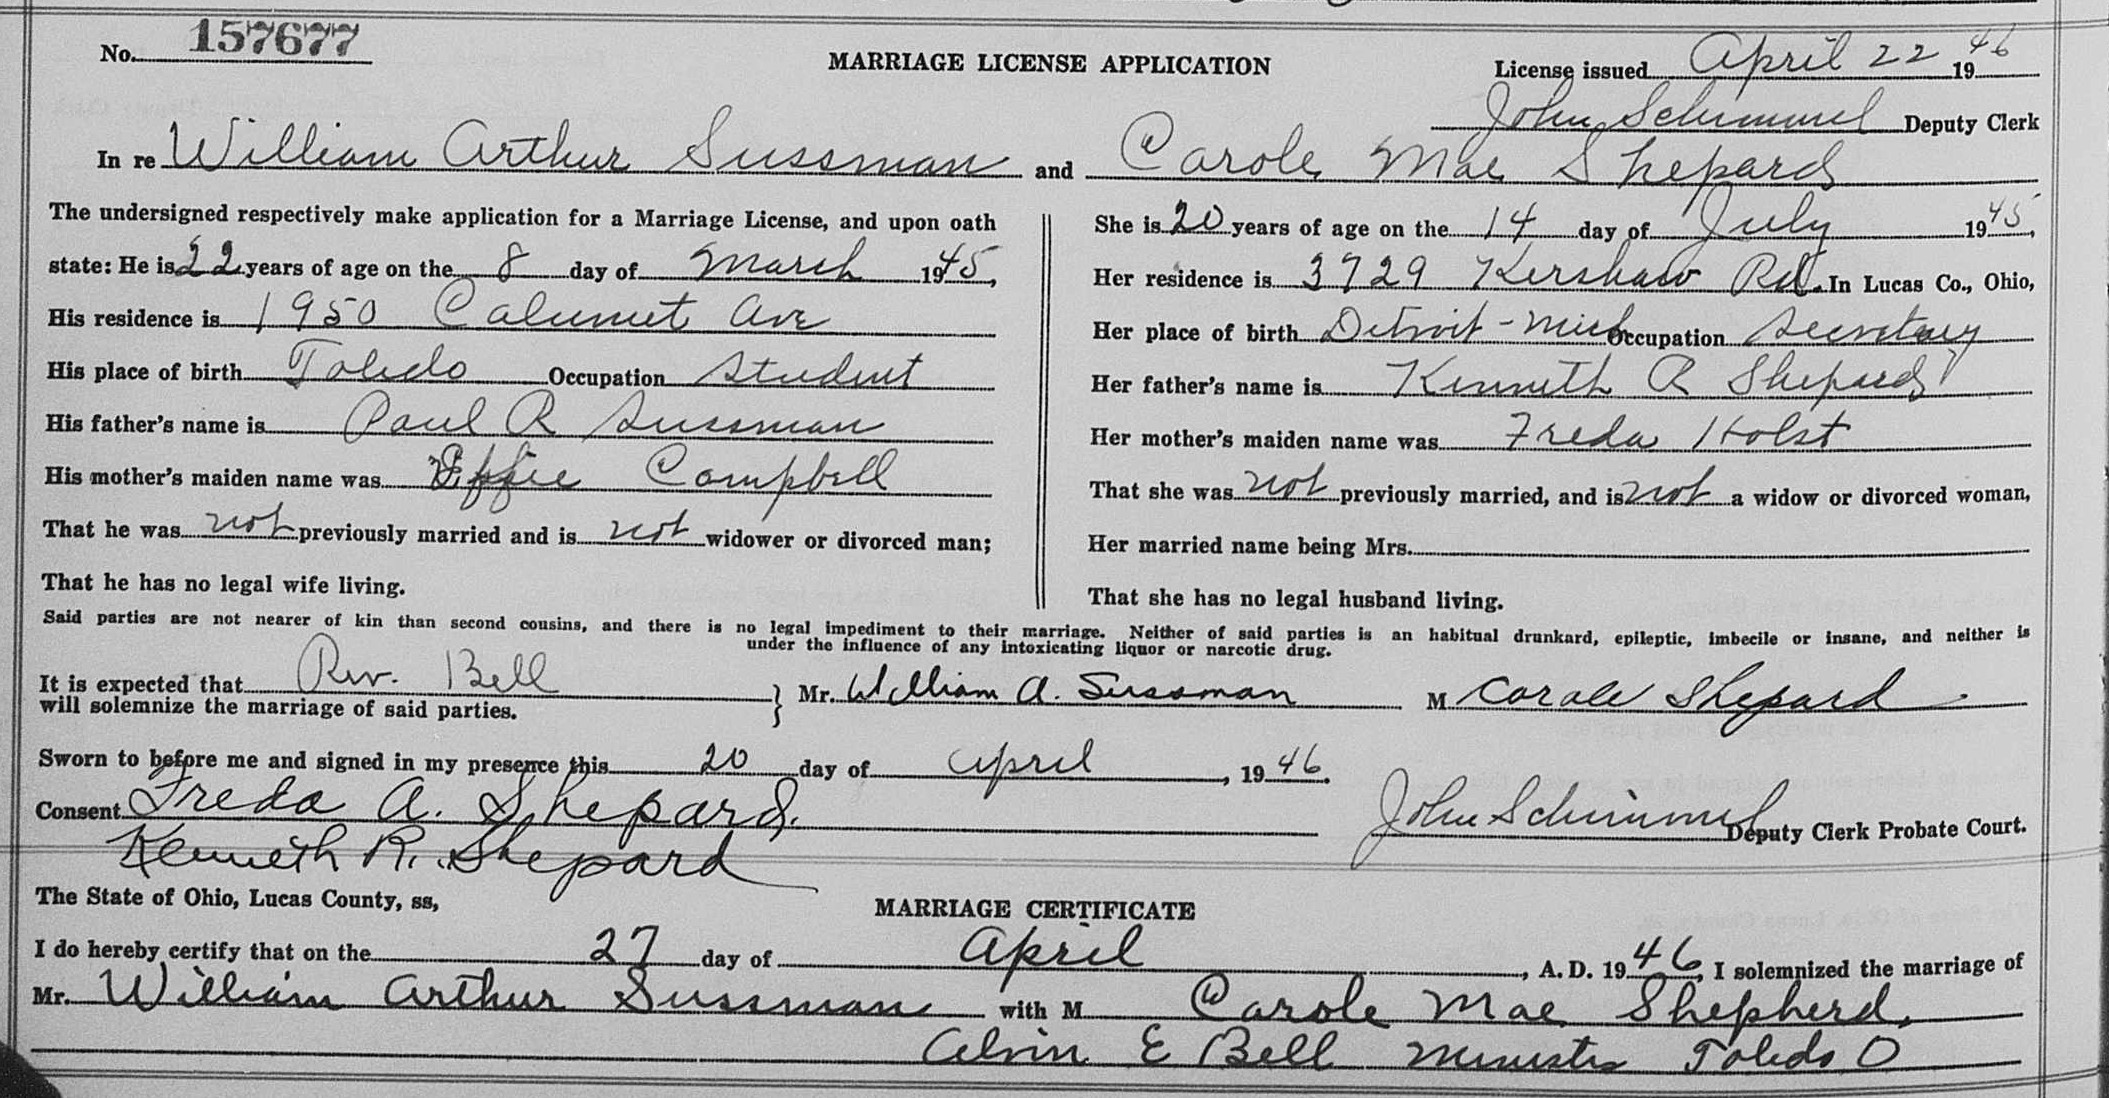 No. 157677
MARRIAGE LICENSE APPLICATION
License issued April 22 1946
John Schimmel Deputy Clerk
In re William Arthur Sussman and Carole Mae Shepard
The undersigned respectively make application for a Marriage License, and upon oath
state: He is 22 years of age on the 8 day of March 1945,
His residence is 1950 Calumet Ave
His place of birth Toledo Occupation Student
His father's name is Paul R Sussman
His mother's maiden name was Effie Campbell
That he was not previously married and is not widower or divorced man;
That he has no legal wife living.
She is 20 years of age on the 14 day of July 1945,
Her residence is 3729 Kershaw Rd. In Lucas Co., Ohio,
Her place of birth Detroit - Mich Occupation Secretary
Her father's name is Kenneth R Shepard
Her mother's maiden name was Freda Holst
That she was not previously married, and is not a widow or divorced woman,
Her married name being Mrs.
That she has no legal husband living.
Said parties are not nearer of kin than second cousins, and there is no legal impediment to their marriage. Neither of said parties is an habitual drunkard, epileptic, imbecile or insane, and neither is
under the influence of any intoxicating liquor or narcotic drug.
It is expected that Rev. Bell
will solemnize the marriage of said parties.
} Mr. William A. Sussman M Carole Shepard
Sworn to before me and signed in my presence this 20 day of April, 1946.
Consent Freda A. Shepard.
John Schimmel Deputy Clerk Probate Court.
Kenneth R. Shepard
The State of Ohio, Lucas County, ss,
MARRIAGE CERTIFICATE
I do hereby certify that on the 27 day of April, A. D. 1946, I solemnized the marriage of
Mr. William Arthur Sussman with M Carole Mae Shepherd.
Alvin E Bell Minister Toledo O